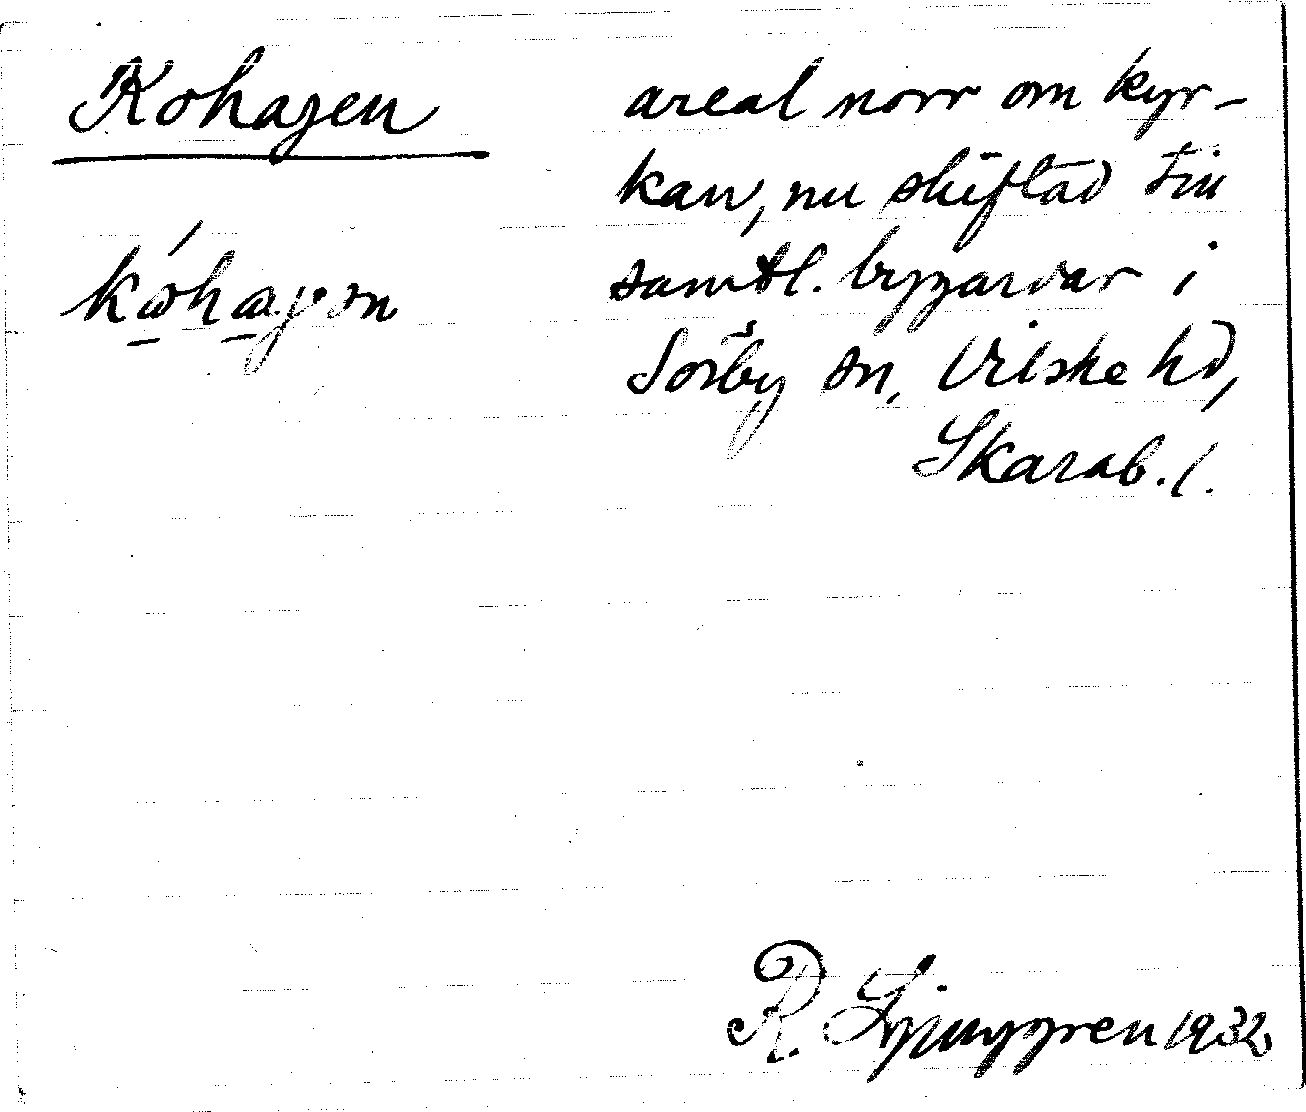 Kohagen
areal norr om kyr-
kan, nu skiftad till
samtl. bygardar i
Sörby sn, Vilske hd,
Skarab. l.
R. Ljunggren 1932